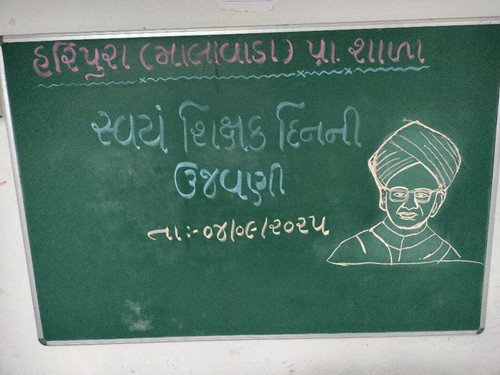 હરિપુરા (માલાવાડા) પ્રા. શાળા
સ્વયં શિક્ષક દિનની
ઉજવણી
તા:-૦૪/૦૯/૨૦૨૫